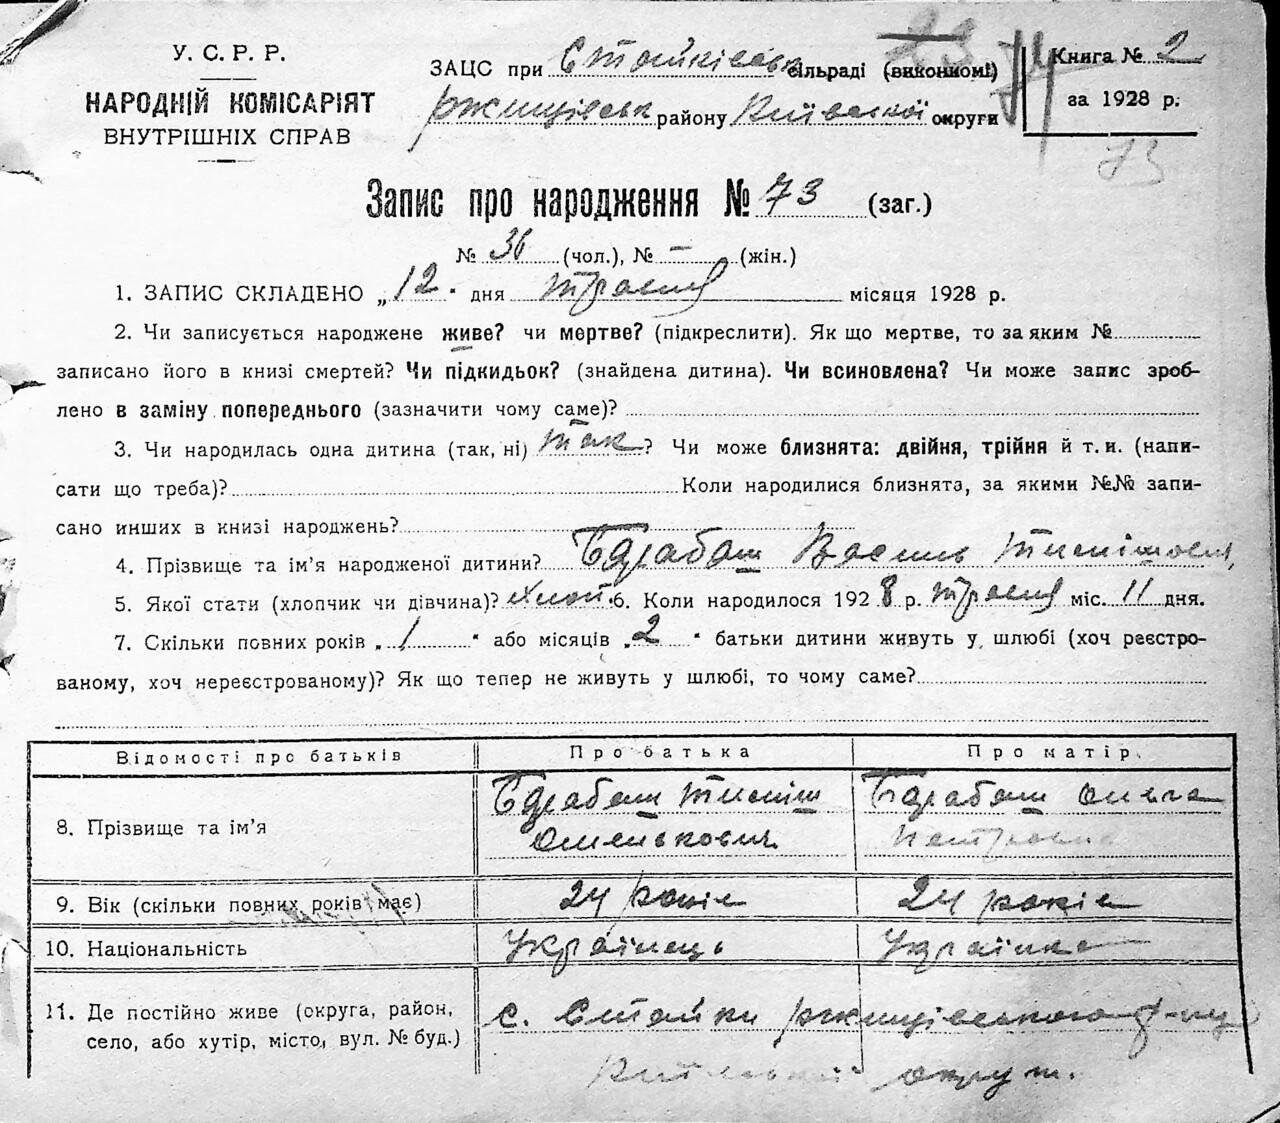 У. С. Р. Р.
НАРОДНІЙ КОМІСАРІЯТ
ВНУТРІШНІХ СПРАВ
ЗАЦС при Стайківськ сільраді (виконкомі)
Ржищівськ району Київської округи
Книга № 2
за 1928 р.
73
Запис про народження № 73 (заг.)
№ 36 (чол.), № – (жін.)
1. ЗАПИС СКЛАДЕНО „12" дня травня місяця 1928 р.
2. Чи записується народжене живе? чи мертве? (підкреслити). Як що мертве, то за яким №
записано його в книзі смертей? Чи підкидьок? (знайдена дитина). Чи всиновлена? Чи може запис зроб-
лено в заміну попереднього (зазначити чому саме)?
3. Чи народилась одна дитина (так, ні) так? Чи може близнята: двійня, трійня й т. и. (напи-
сати що треба)? Коли народилися близнята, за якими №№ запи-
сано инших в книзі народжень?
4. Прізвище та ім'я народженої дитини? Барабаш Василь Тимішович
5. Якої стати (хлопчик чи дівчина)? хлоп. 6. Коли народилося 1928 р. травня міс. 11 дня.
7. Скільки повних років „1" або місяців „2" батьки дитини живуть у шлюбі (хоч реєстро-
ваному, хоч нереєстрованому)? Як що тепер не живуть у шлюбі, то чому саме?
Відомості про батьків Про батька Про матір.
8. Прізвище та ім'я Барабаш Тиміш Омелькович Барабаш Ольга Петровна
9. Вік (скільки повних років має) 24 років 24 років
10. Національність Українець Українка
11. Де постійно живе (округа, район,
село, або хутір, місто, вул. № буд.) с. Стайки Ржищівського р-ну
Київської округи.